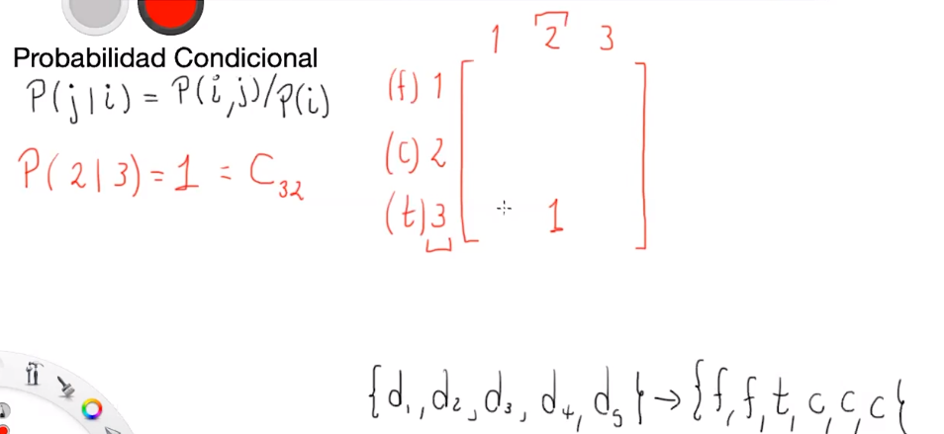 Probabilidad Condicional
P(j|i) = P(i,j)/P(i)
P(2|3) = 1 = C₃₂
1 2 3
(f) 1
(c) 2
(t) 3 1
{d₁, d₂, d₃, d₄, d₅} → {f, f, t, c, c, c}